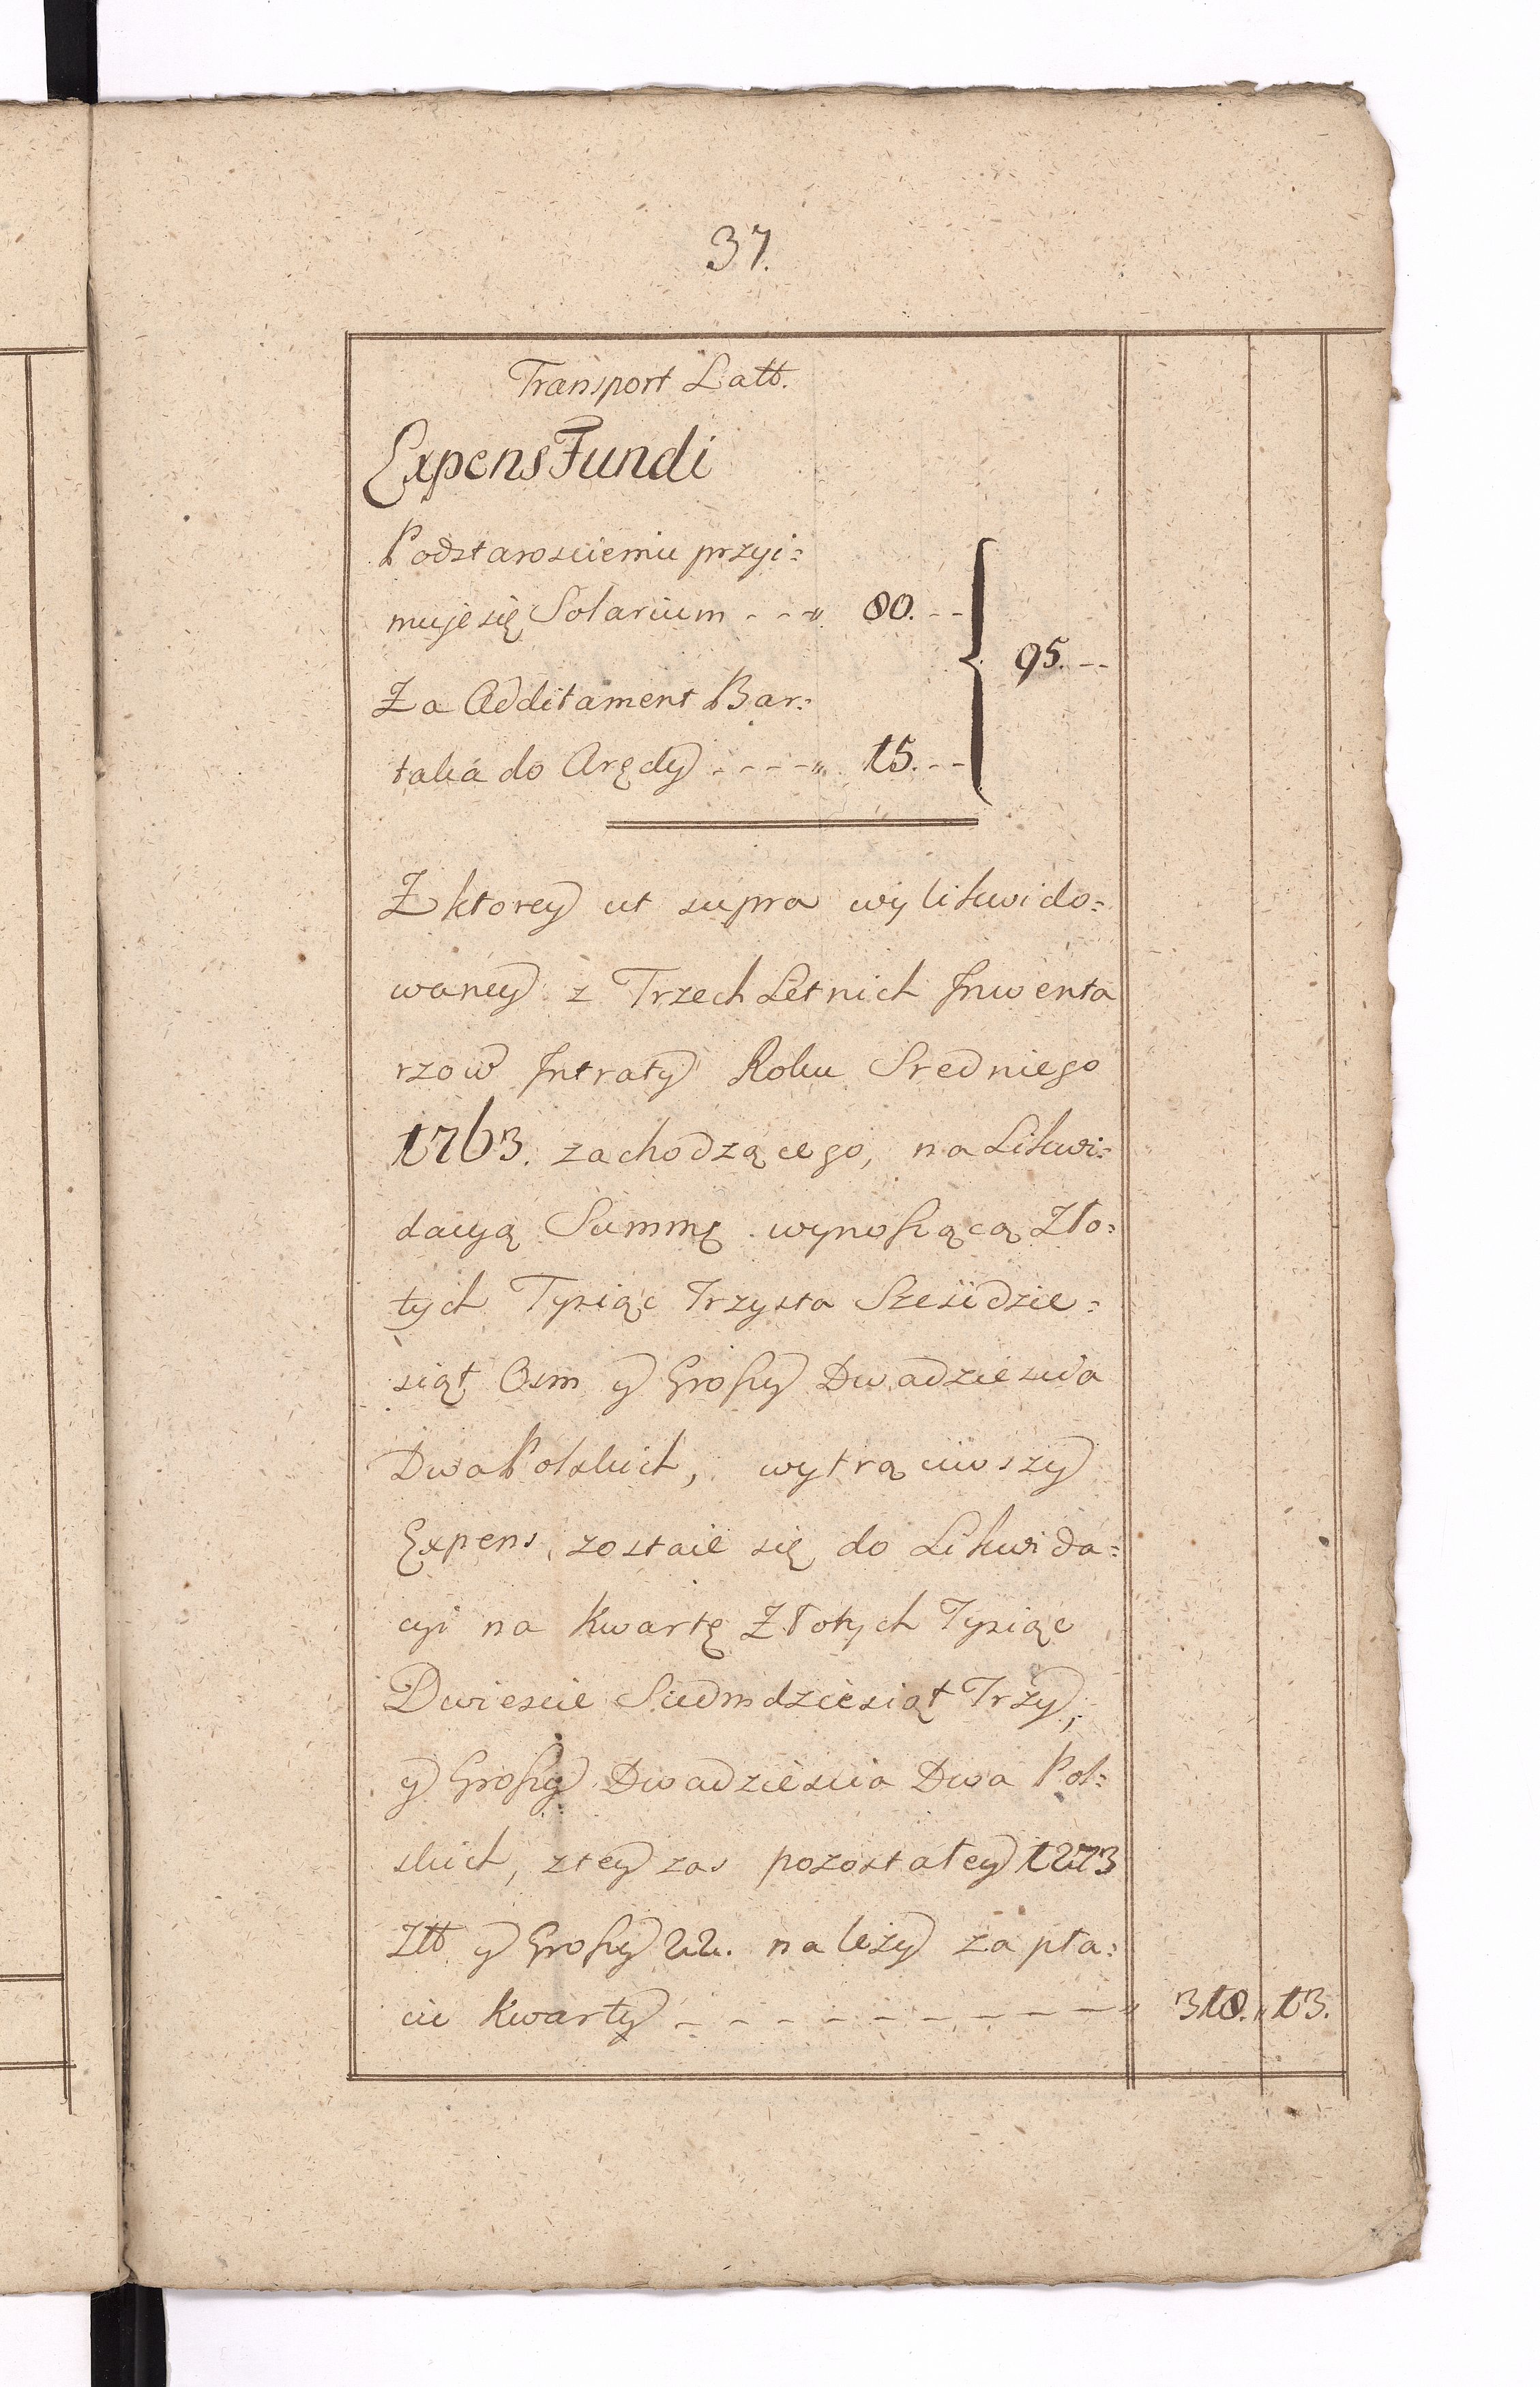 37.
Transport Latt.
Expens Fundi
Podstarosciemu przyi:
muje się Solarium - - - „ 80. - -
95. - -
Za Additament Bar:
taka do Arędy - - - - „ 15. - -
Z ktorey ut supra wylikwido:
waney z Trzech Letnich Jnwenta
rzow Jntraty Roku Sredniego
1763. zachodzącego, na Likwi:
dacyą Summę wynoszącą Zło:
tych Tysiąc Trzysta Szescdzie:
siąt Osm y Groszy Dwadziescia
Dwa Polskich, wytrąciwszy
Expens, zostaie się do Likwida:
cyi na Kwartę Złotych Tysiąc
Dwiescie Siedmdziesiąt Trzy,
y Groszy Dwadziescia Dwa Pol:
skich, z tey zas pozostałey 1273
Złł y Groszy 22. należy zapła:
cic Kwarty - - - - - - - - - - „ 318. „ 13.